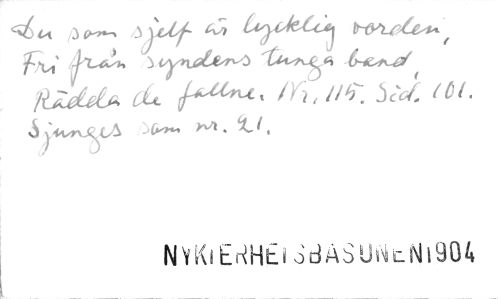 Du som sjelf är lycklig vorden,
Fri från syndens tunga band,
Rädda de fallne. Nr. 115. Sid. 101.
Sjunges som nr. 21.
NYKTERHETSBASUNEN 1904